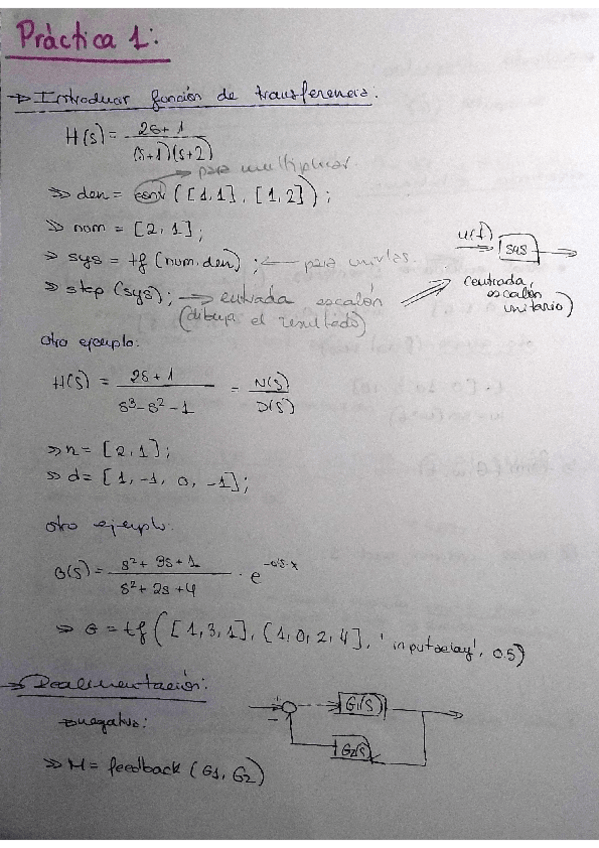 Práctica 1:
→ Introducir función de transferencia.
H(s) = 2s+1 / (s+1)(s+2)
→ para multiplicar.
>> den = conv ([1,1], [1,2]);
>> num = [2,1];
>> sys = tf (num,den); ← para unirlas.
>> step (sys); → entrada escalón
(dibuja el resultado)
u(t) → sys →
(entrada escalón unitario)
otro ejemplo:
H(s) = 2s+1 / s³-s²-1 = N(s) / D(s)
>> n = [2,1];
>> d = [1,-1,0,-1];
otro ejemplo:
G(s) = / s²+2s+4 · e
>> G = tf ([1,3,1], [1,0,2,4], 'inputdelay', 0.5)
→ Realimentación:
→ negativa:
G1(s)
G2(s)
>> M = feedback (G1, G2)